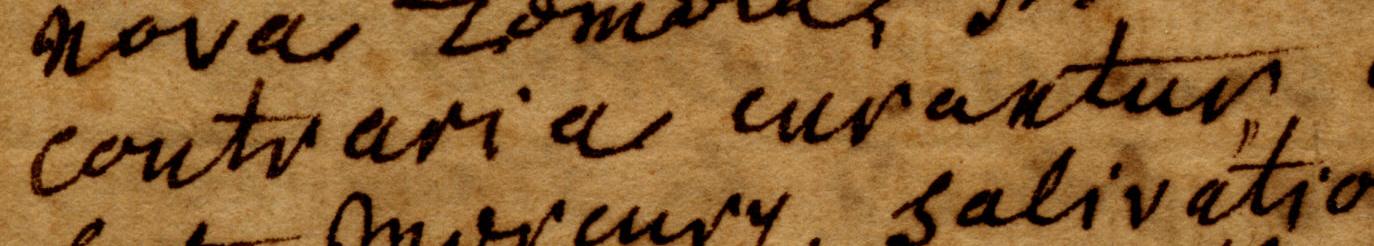 nova Zomora,
contraria curantur,
mercury, salivatio